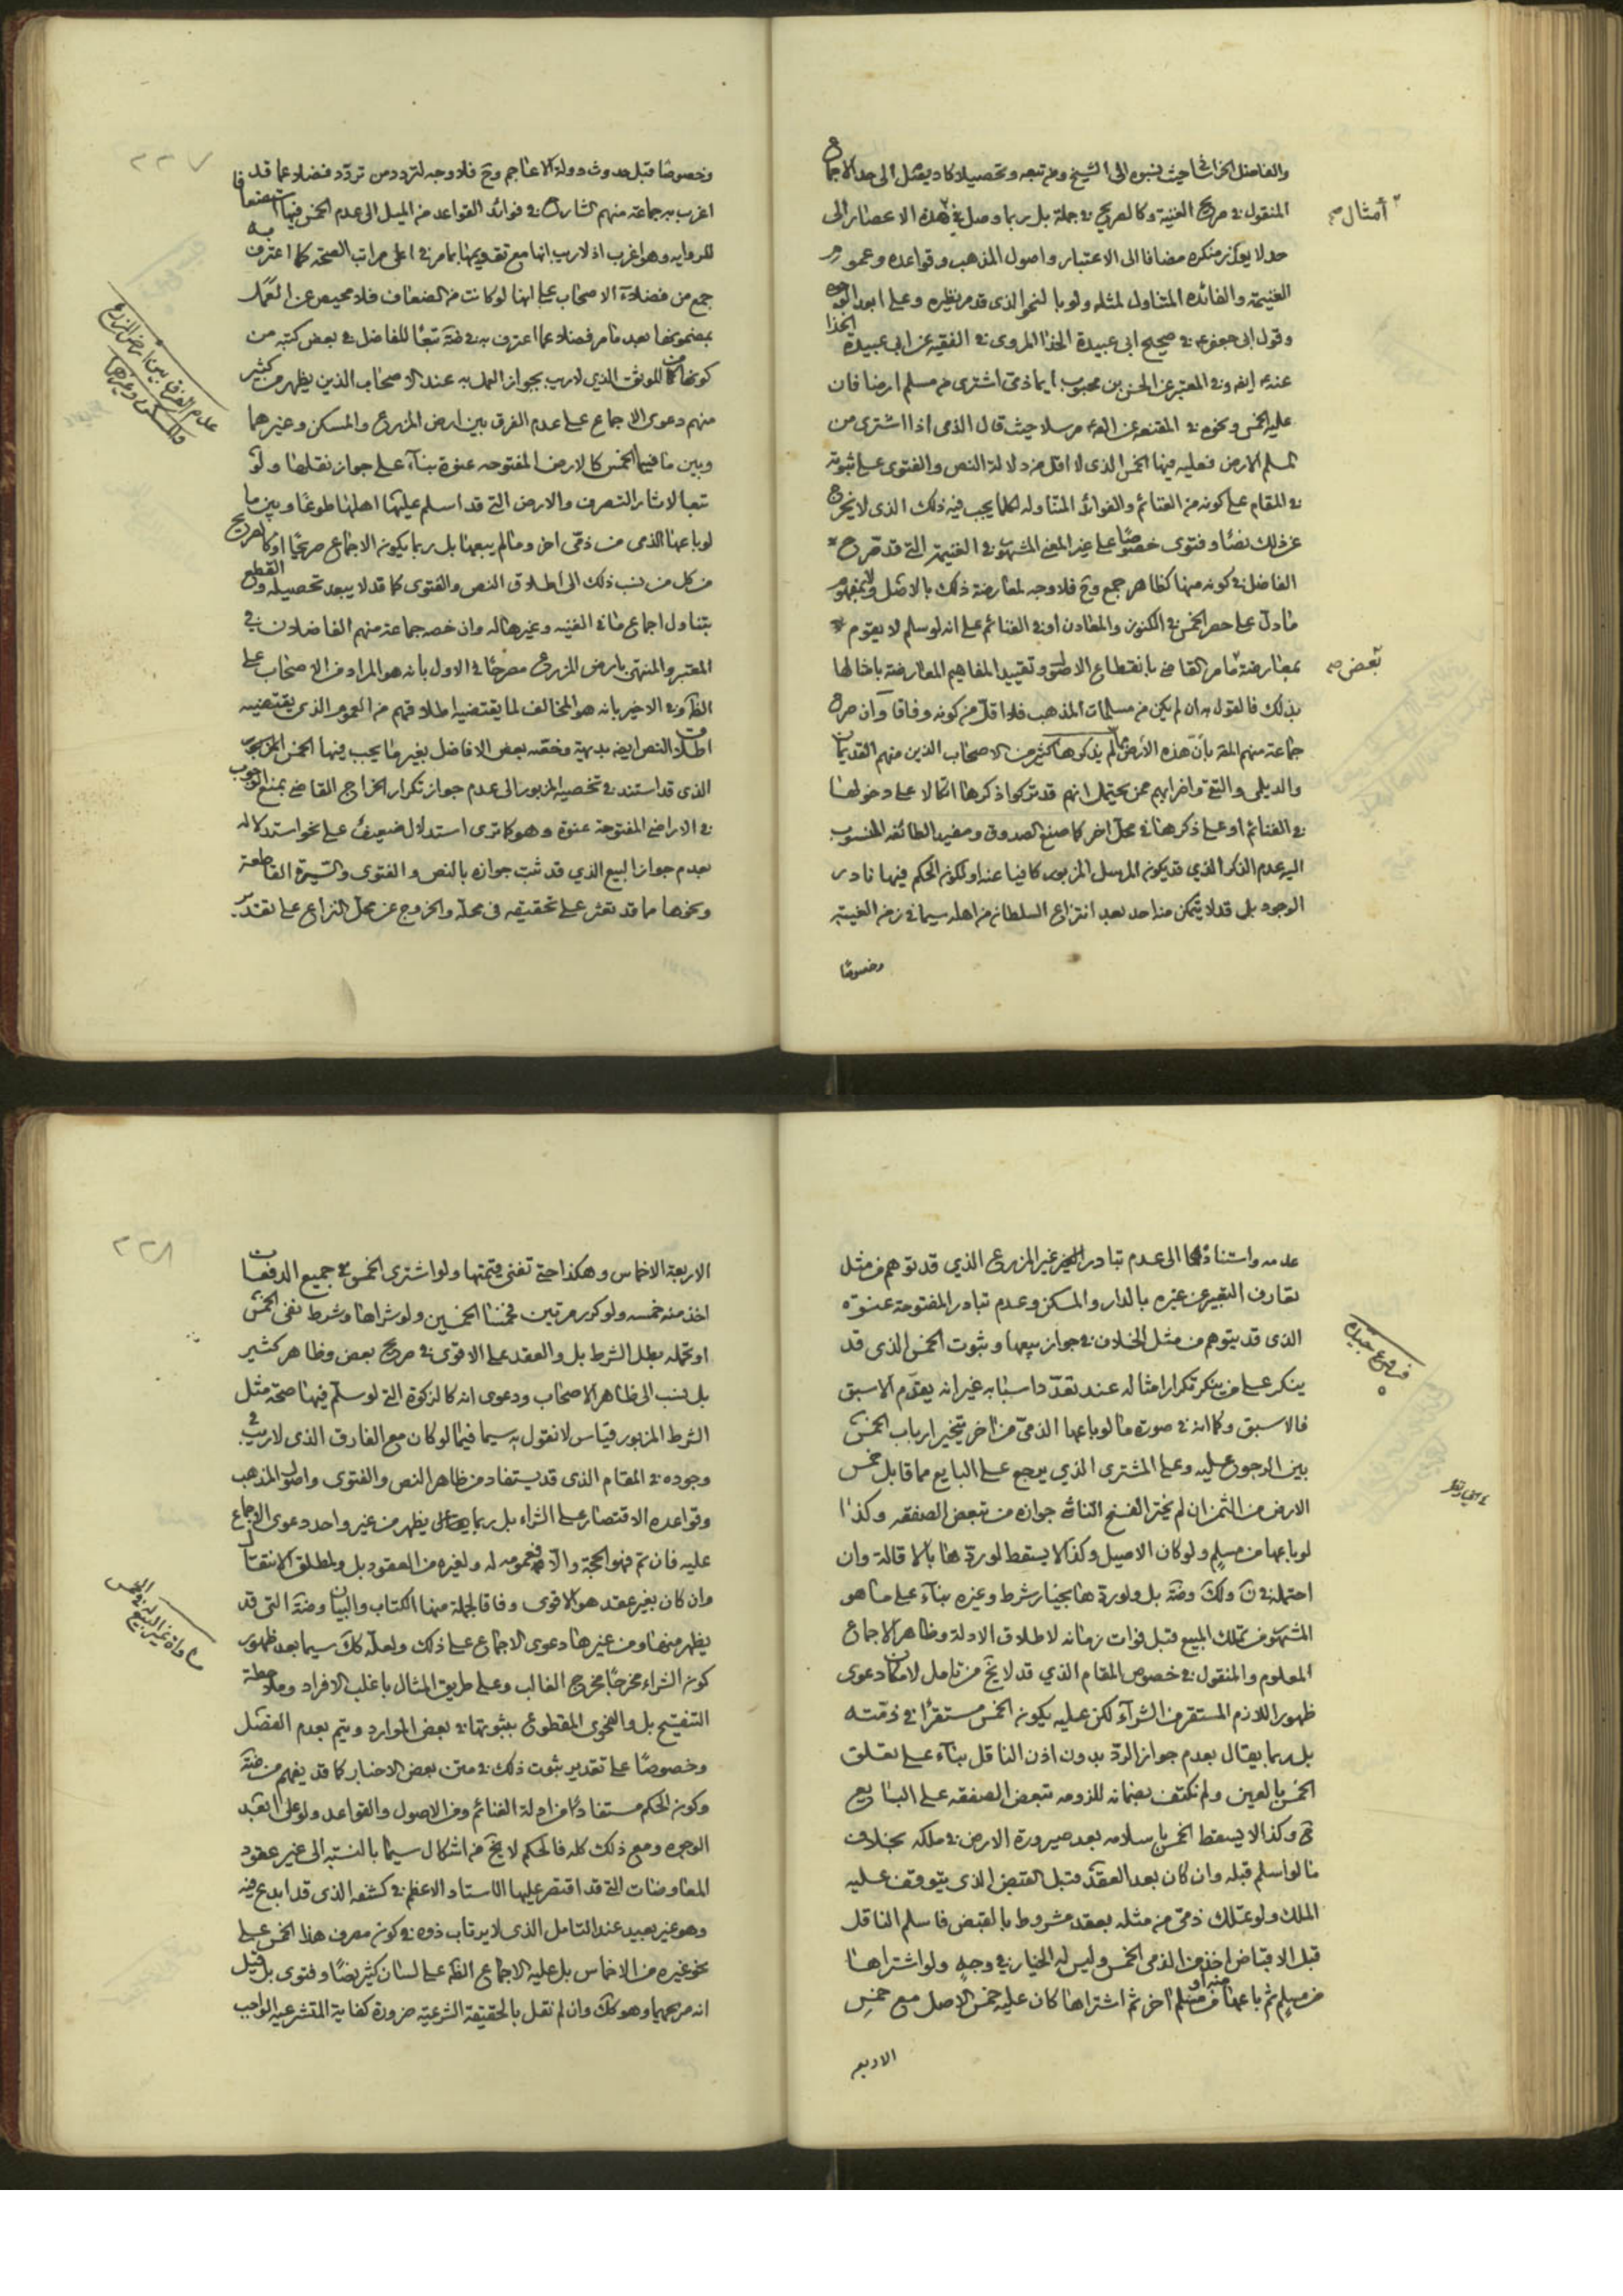 والفاضل الخراساني حيث نسبوه الى الشيخ ومن تبعه وتحصيلا كاد يصل الى حد الاجماع
المنقول في صريح الغنية وكالصريح في جملة بل ربما وصل في هذه الاعصار الى
أمثال
حد لا يعذر منكره مضافا الى الاعتبار واصول المذهب وقواعده وعموم
الغنيمة والفائده المتناول لمثله ولو بالنحو الذي قد مر نظيره وعلى ابعد الوجوه
وقول ابي جعفر ع في صحيح ابي عبيدة الحذا المروي في الفقيه عن ابي عبيدة الحذا
عنه ع ايضا وفي المعتبر عن الحسن بن محبوب ايما ذمي اشترى من مسلم ارضا فان
عليه الخمس ونحوه في المقنعه عن الص ع مرسلا حيث قال الذمي اذا اشترى من
المسلم الارض فعليه فيها الخمس الذي لا اقل من دلالة النص والفتوى على ثبوته
في المقام على كونه من الغنائم والفوائد المتناوله لكلما يجب فيه ذلك الذي لا يخرج
عن ذلك نصا وفتوى خصوصا على غير المعنى المشهور في الغنيمة التي قد صرح
الفاضل في كونه منها كظاهر جمع وح فلا وجه لمعارضة ذلك بالاصل ولا بمفهوم
ما دل على حصر الخمس في الكنوز والمعادن او في الغنائم على انه لو سلم لا يقوم
بمعارضة ما مر القاضي بانقطاع الاصل وتقييد المفاهيم المعارضة باخالها
بعض
بذلك فالقول به ان لم يكن من مسلمات المذهب فلا اقل من كونه وفاقا وان صرح
جماعة منهم المقد بان هذه الأرض لم يذكرها كثير من الاصحاب الذين منهم القديمان
والديلمي والتقي واضرابهم ممن يحتمل انهم قد تركوا ذكرها اتكالا على دخولها
في الغنائم او على ذكرها في محل اخر كما صنع الصدوق ومفيد الطائفه المنسوب
اليه عدم الذكر الذي قد يكون المرسل المزبور كافيا عنه او لكون الحكم فيها نادر
الوجود بل قد لا يتمكن منه احد بعد انتزاع السلطان من اهله سيما في زمن الغيبة
وخصوصا
٢٢٧
وخصوصا قبل حدوث دولة الاعاجم وح فلا وجه لتردد من تردد فضلا عما قد
اغرب به جماعة منهم الشارح في فوائد القواعد من الميل الى عدم الخمس فيها استضعافا
للروايه وهو اغرب اذ لا ريب انها مع تقويمها بما مر في اعلى مراتب الصحة كما اعترف به
جمع من فضلاء الاصحاب على انها لو كانت من الضعاف فلا محيص عن العمل
بمضمونها بعد ما مر فضلا عما اعترف به في ضة تبعا للفاضل في بعض كتبه من
كونها من الموثق الذي لا ريب بجواز العمل به عند الاصحاب الذين يظهر من كثير
منهم دعوى الاجماع على عدم الفرق بين ارض المزرع والمسكن وغيرهما
عدم الفرق بين ارض المزرع والمسكن وغيرها
وبين ما فيها الخمس كالارض المفتوحه عنوة بناء على جواز نقلها ولو
تبعا لاثار التصرف والارض التي قد اسلم عليها اهلها طوعا وبين ما
لو باعها الذمي من ذمي اخر وما لم يبعها بل ربما يكون الاجماع صريحا او كالصريح
من كل من نسب ذلك الى اطلاق النص والفتوى كما قد لا يبعد تحصيله والقطع
بتناول اجماع ما في الغنيه وغيرها له وان خصه جماعة منهم الفاضلان في
المعتبر والمنتهى بارض المزرع مصرحا في الاول بانه هو المراد من الاصحاب على
الظ وفي الاخير بانه هو المخالف لما يقتضيه اطلاقهم من العموم الذي يقتضيه
اطلاق النص ايضا بديهة وخصه بعض الافاضل بغير ما يجب فيها الخمس المزبور
الذي قد استند في تخصيصه المزبور الى عدم جواز تكرار اخراج القاضي بمنع الوجوب
في الاراضي المفتوحة عنوة وهو كما ترى استدلال ضعيف على نحو استدلاله
بعدم جواز البيع الذي قد ثبت جوازه بالنص والفتوى والسيرة القاطعة
ونحوها مما قد تعثر على تحقيقه في محله والخروج عن محل النزاع على تقدير
عدمه واستنادهما الى عدم تبادر غير المزرع الذي قد توهم من مثل
تعارف التعبير عن غيره بالدار والمسكن وعدم تبادر المفتوحة عنوة
الذي قد يتوهم من مثل الخلاف في جواز بيعها وثبوت الخمس الذي قد
فروع جيدة
ينكر على من ينكر تكرار امثاله عند تعدد اسبابه غير انه يقدم الاسبق
فالاسبق وكما انه في صورة ما لو باعها الذمي من اخر يتخير ارباب الخمس
بين الرجوع عليه وعلى المشتري الذي يرجع على البايع مما قابل خمس
الارض من الثمن ان لم يختر الفسخ الناشي جوازه من تبعض الصفقه وكذا
لو باعها من مسلم ولو كان الاصيل وكذا لا يسقط لو ردها بالاقالة وان
احتمله في ن ولك وضة بل ولو ردها بخيار شرط وغيره بناء على ما هو
المشهور من تملك المبيع قبل فوات زمانه لاطلاق الادلة وظاهر الاجماع
المعلوم والمنقول في خصوص المقام الذي قد لا يخ من تامل لامكان دعوى
ظهور اللازم المستقر من الشراء لكن عليه يكون الخمس مستقرا في ذمته
بل ربما يقال بعدم جواز الرد بدون اذن الناقل بناء على تعلق
الخمس بالعين ولم نكتف بضمانه للزومه تبعض الصفقه على البايع
ح وكذا لا يسقط الخمس باسلامه بعد صيرورة الارض في ملكه بخلاف
ما لو اسلم قبله وان كان بعد العقد قبل القبض الذي يتوقف عليه
الملك ولو تملك ذمي من مثله بعقد مشروط بالقبض فاسلم الناقل
قبل الاقباض اخذ من الذمي الخمس وليس له الخيار في وجه ولو اشتراها
من مسلم ثم باعها منه او من مسلم اخر ثم اشتراها كان عليه خمس الاصل مع خمس
الاربعه
٢٢٨
الاربعة الاخماس وهكذا حتى تفنى قيمتها ولو اشترى الخمس في جميع الدفعات
اخذ منه خمسه ولو كرر مرتين فخمسا الخمسين ولو شراها وشرط نفي الخمس
او تحمله بطل الشرط بل والعقد على الاقوى في صريح بعض وظاهر كثير
بل نسب الى ظاهر الاصحاب ودعوى انه كالزكوة التي لو سلم فيها صحة مثل
الشرط المزبور قياس لا نقول به سيما فيما لو كان مع الفارق الذي لا ريب في
وجوده في المقام الذي قد يستفاد من ظاهر النص والفتوى واصول المذهب
وقواعده الاقتصار على الشراء بل ربما يظهر من غير واحد دعوى الاجماع
عليه فان تم فهو الحجة والا فعمومه له ولغيره من العقود بل ولمطلق الانتقال
وان كان بغير عقد هو الاقوى وفاقا لجملة منها الكتاب والبيان وضة التي قد
يظهر منها ومن غيرها دعوى الاجماع على ذلك ولعله كك سيما بعد ظهور
كون الشراء مخرجا مخرج الغالب وعلى طريق المثال باغلب الافراد وملاحظة
التنقيح بل والفحوى المقطوع بثبوتها في بعض الموارد ويتم بعدم الفصل
وخصوصا على تقدير ثبوت ذلك في متن بعض الاخبار كما قد يفهم من ضة
وكون الحكم مستفادا من ادلة الغنائم ومن الاصول والقواعد ولو على ابعد
الوجوه ومع ذلك كله فالحكم لا يخ من اشكال سيما بالنسبة الى غير عقود
المعاوضات التي قد اقتصر عليها الاستاد الاعظم في كشفه الذي قد ابدع فيه
وهو غير بعيد عند التامل الذي لا يرتاب ذوه في كون مصرف هذا الخمس على
نحو غيره من الاخماس بل عليه الاجماع الظ على لسان كثير نصا وفتوى بل قيل
انه صريحهما وهو كك وان لم نقل بالحقيقة الشرعيه ضرورة كفاية المتشرعيه الواجب